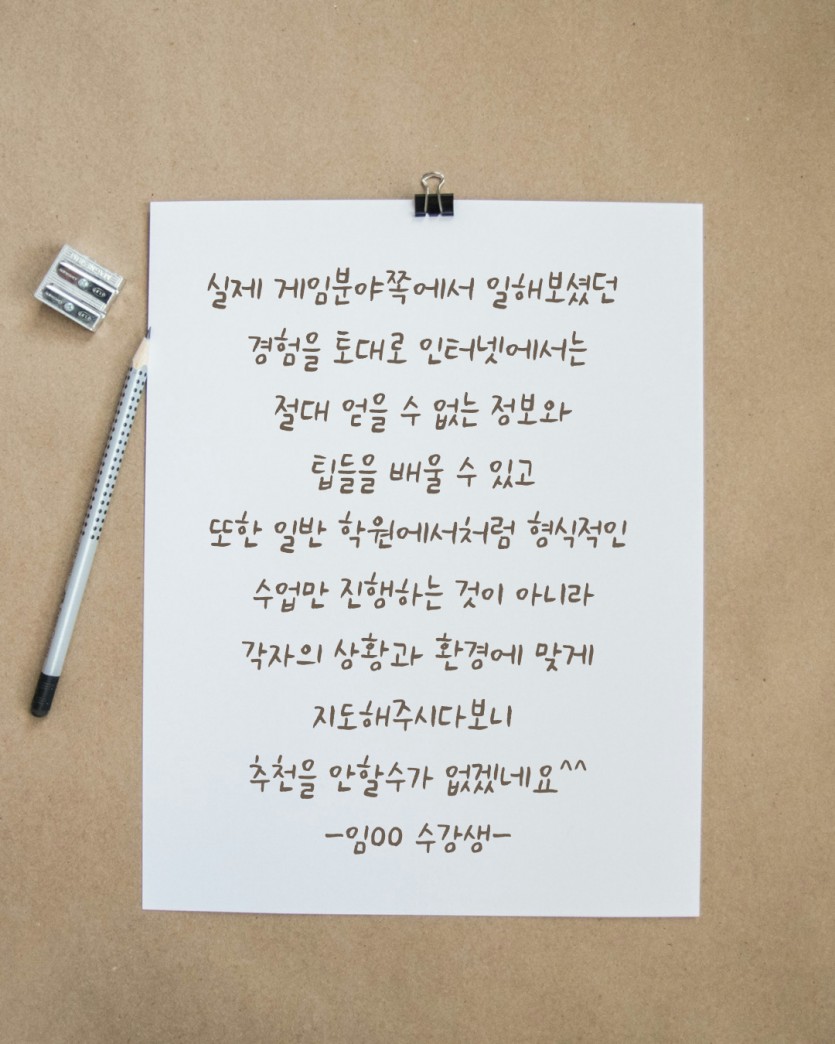 실제 게임분야쪽에서 일해보셨던
경험을 토대로 인터넷에서는
절대 얻을 수 없는 정보와
팁들을 배울 수 있고
또한 일반 학원에서처럼 형식적인
수업만 진행하는 것이 아니라
각자의 상황과 환경에 맞게
지도해주시다보니
추천을 안할수가 없겠네요^^
-임OO 수강생-